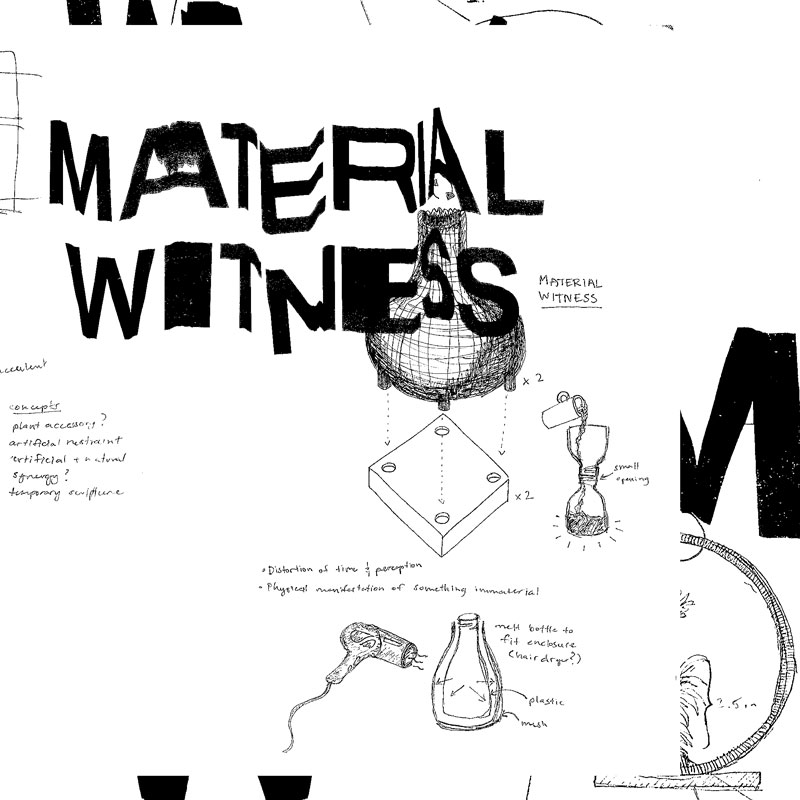 MATERIAL
WITNESS
MATERIAL
WITNESS
x 2
concepts
plant accessory?
artificial restraint
artificial + natural
synergy?
temporary sculpture
small
opening
x 2
• Distortion of time & perception
• Physical manifestation of something immaterial
melt bottle to
fit enclosure
(hair dryer?)
plastic
mesh
M